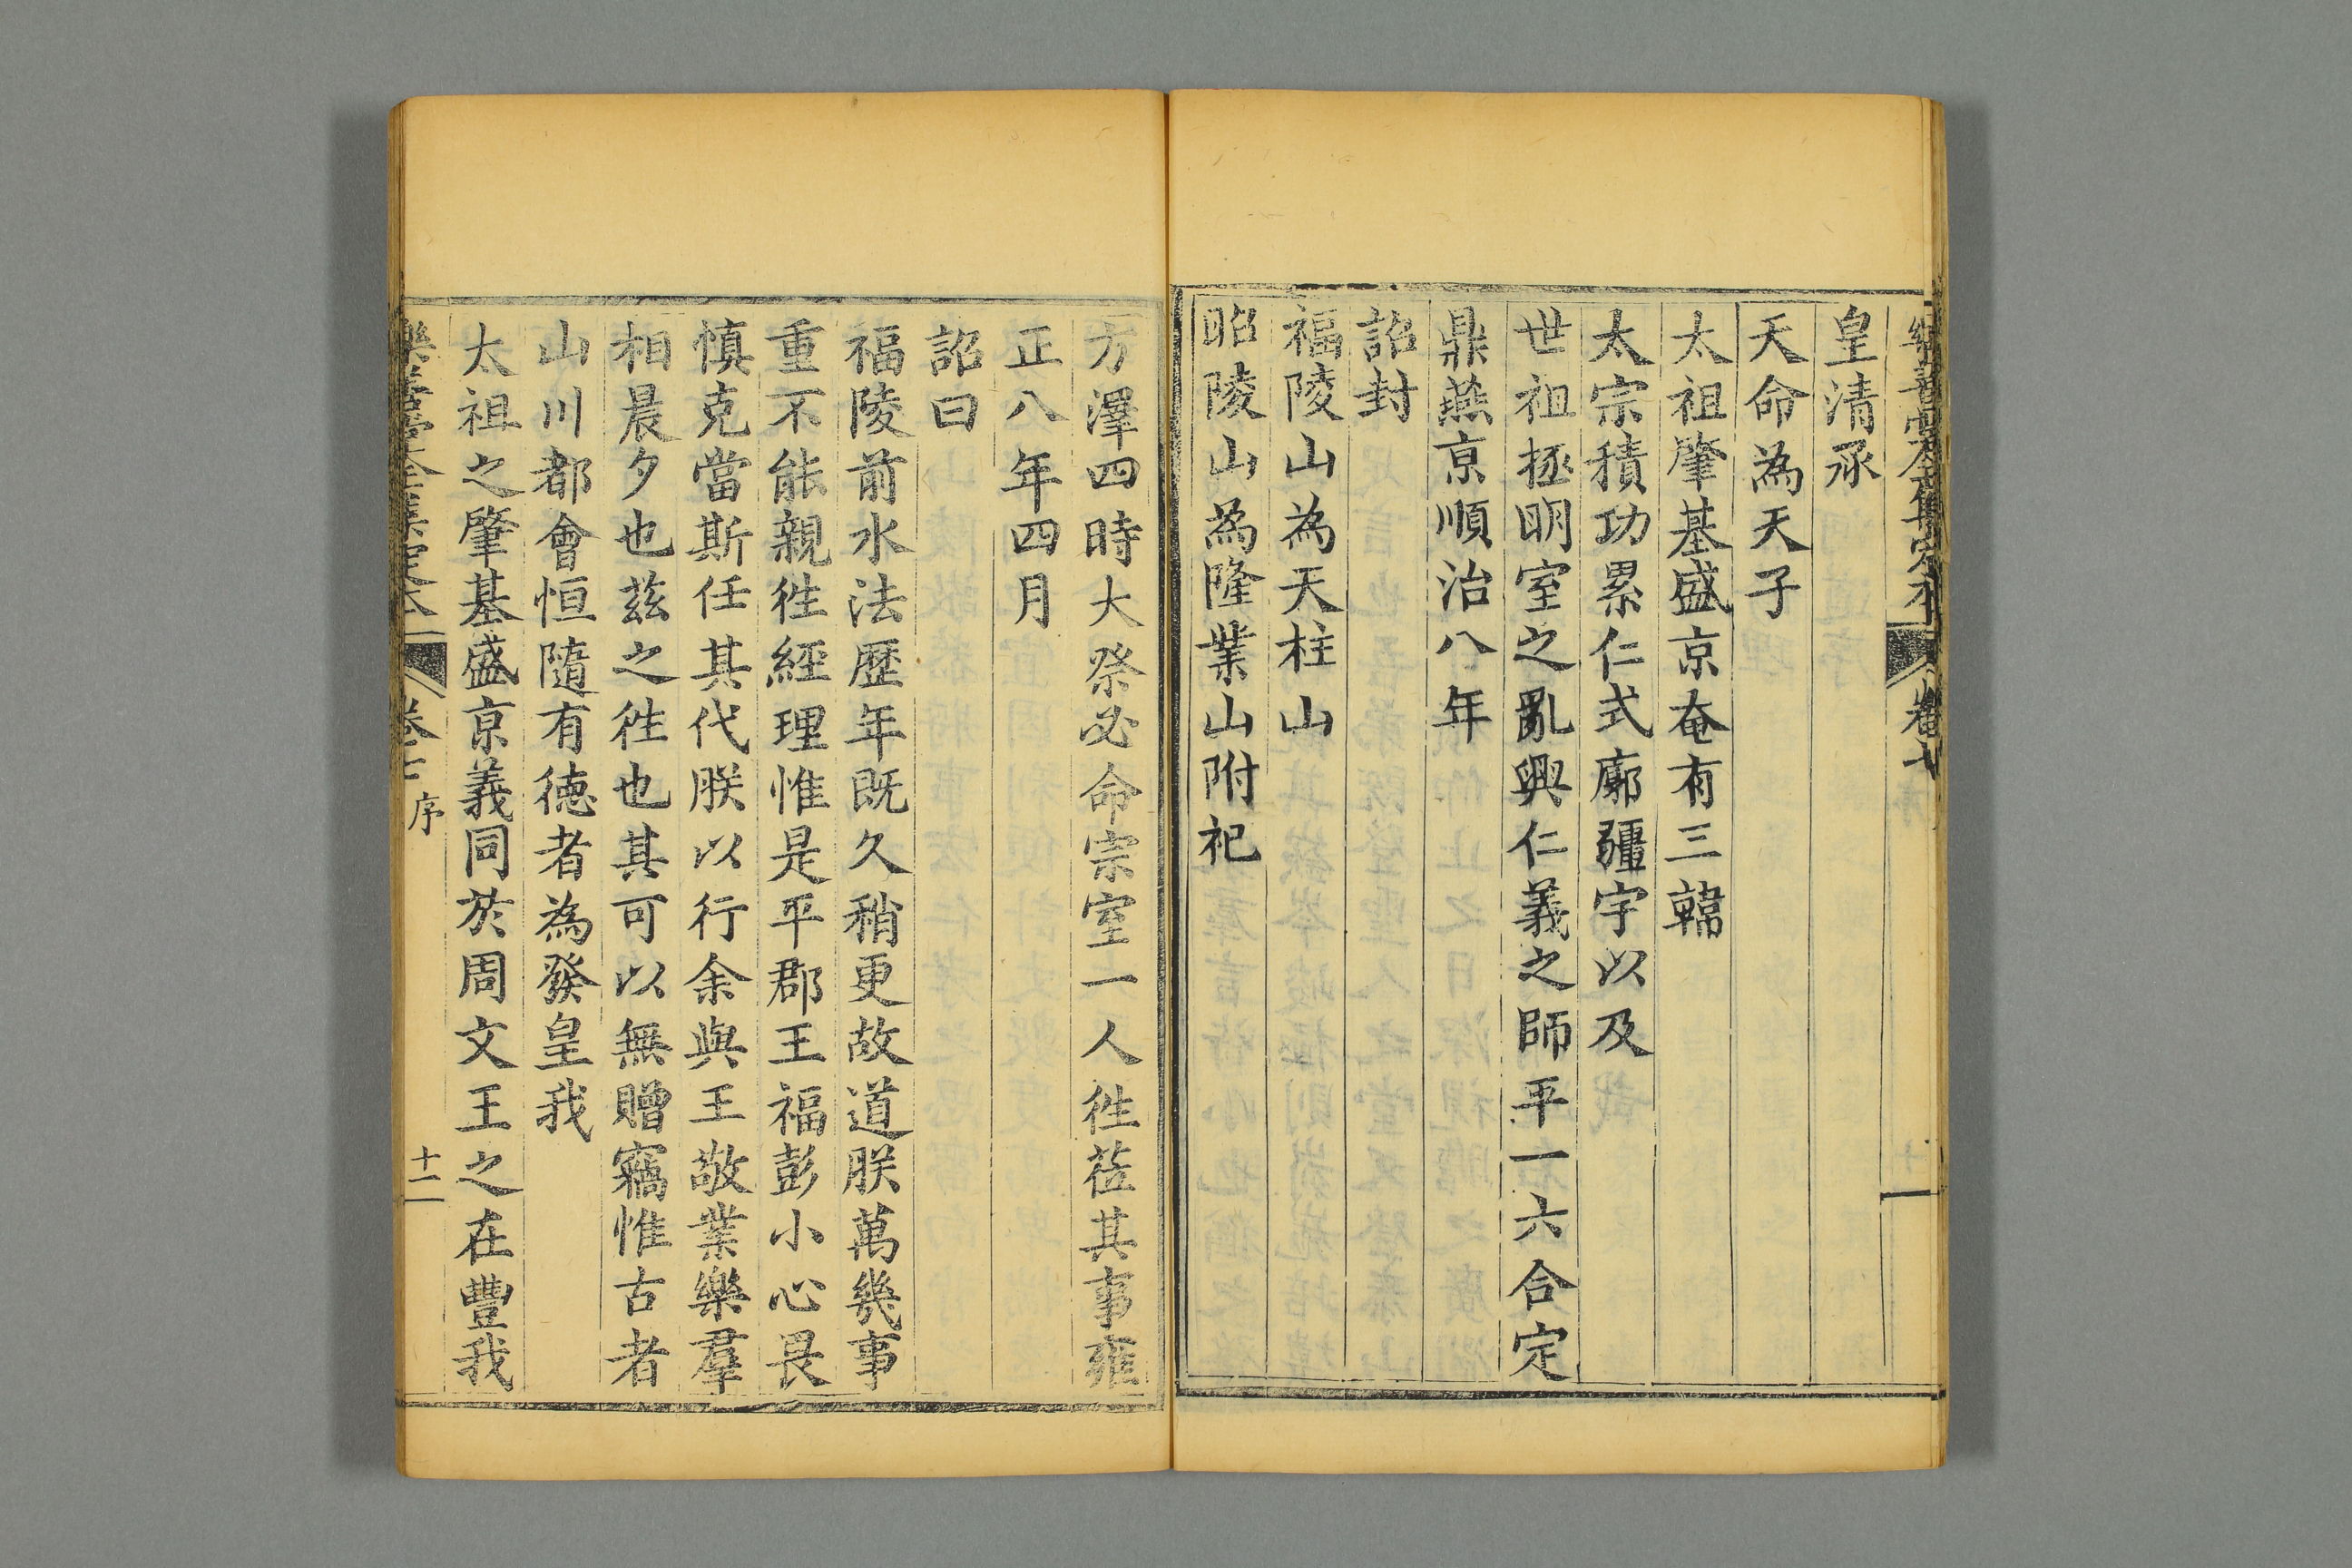 樂善堂全集定本 卷七
皇清承
天命為天子
太祖肇基盛京奄有三韓
太宗積功累仁式廓疆宇以及
世祖拯明室之亂興仁義之師平一六合定
鼎燕京順治八年
詔封
福陵山為天柱山
昭陵山為隆業山附祀
方澤四時大祭必命宗室一人徃蒞其事雍
正八年四月
詔曰
福陵前水法歷年既久稍更故道朕萬幾事
重不能親徃經理惟是平郡王福彭小心畏
慎克當斯任其代朕以行余與王敬業樂羣
相晨夕也茲之徃也其可以無贈竊惟古者
山川都會恒隨有德者為發皇我
太祖之肇基盛京義同於周文王之在豐我
樂善堂全集定本 卷七 序 十二